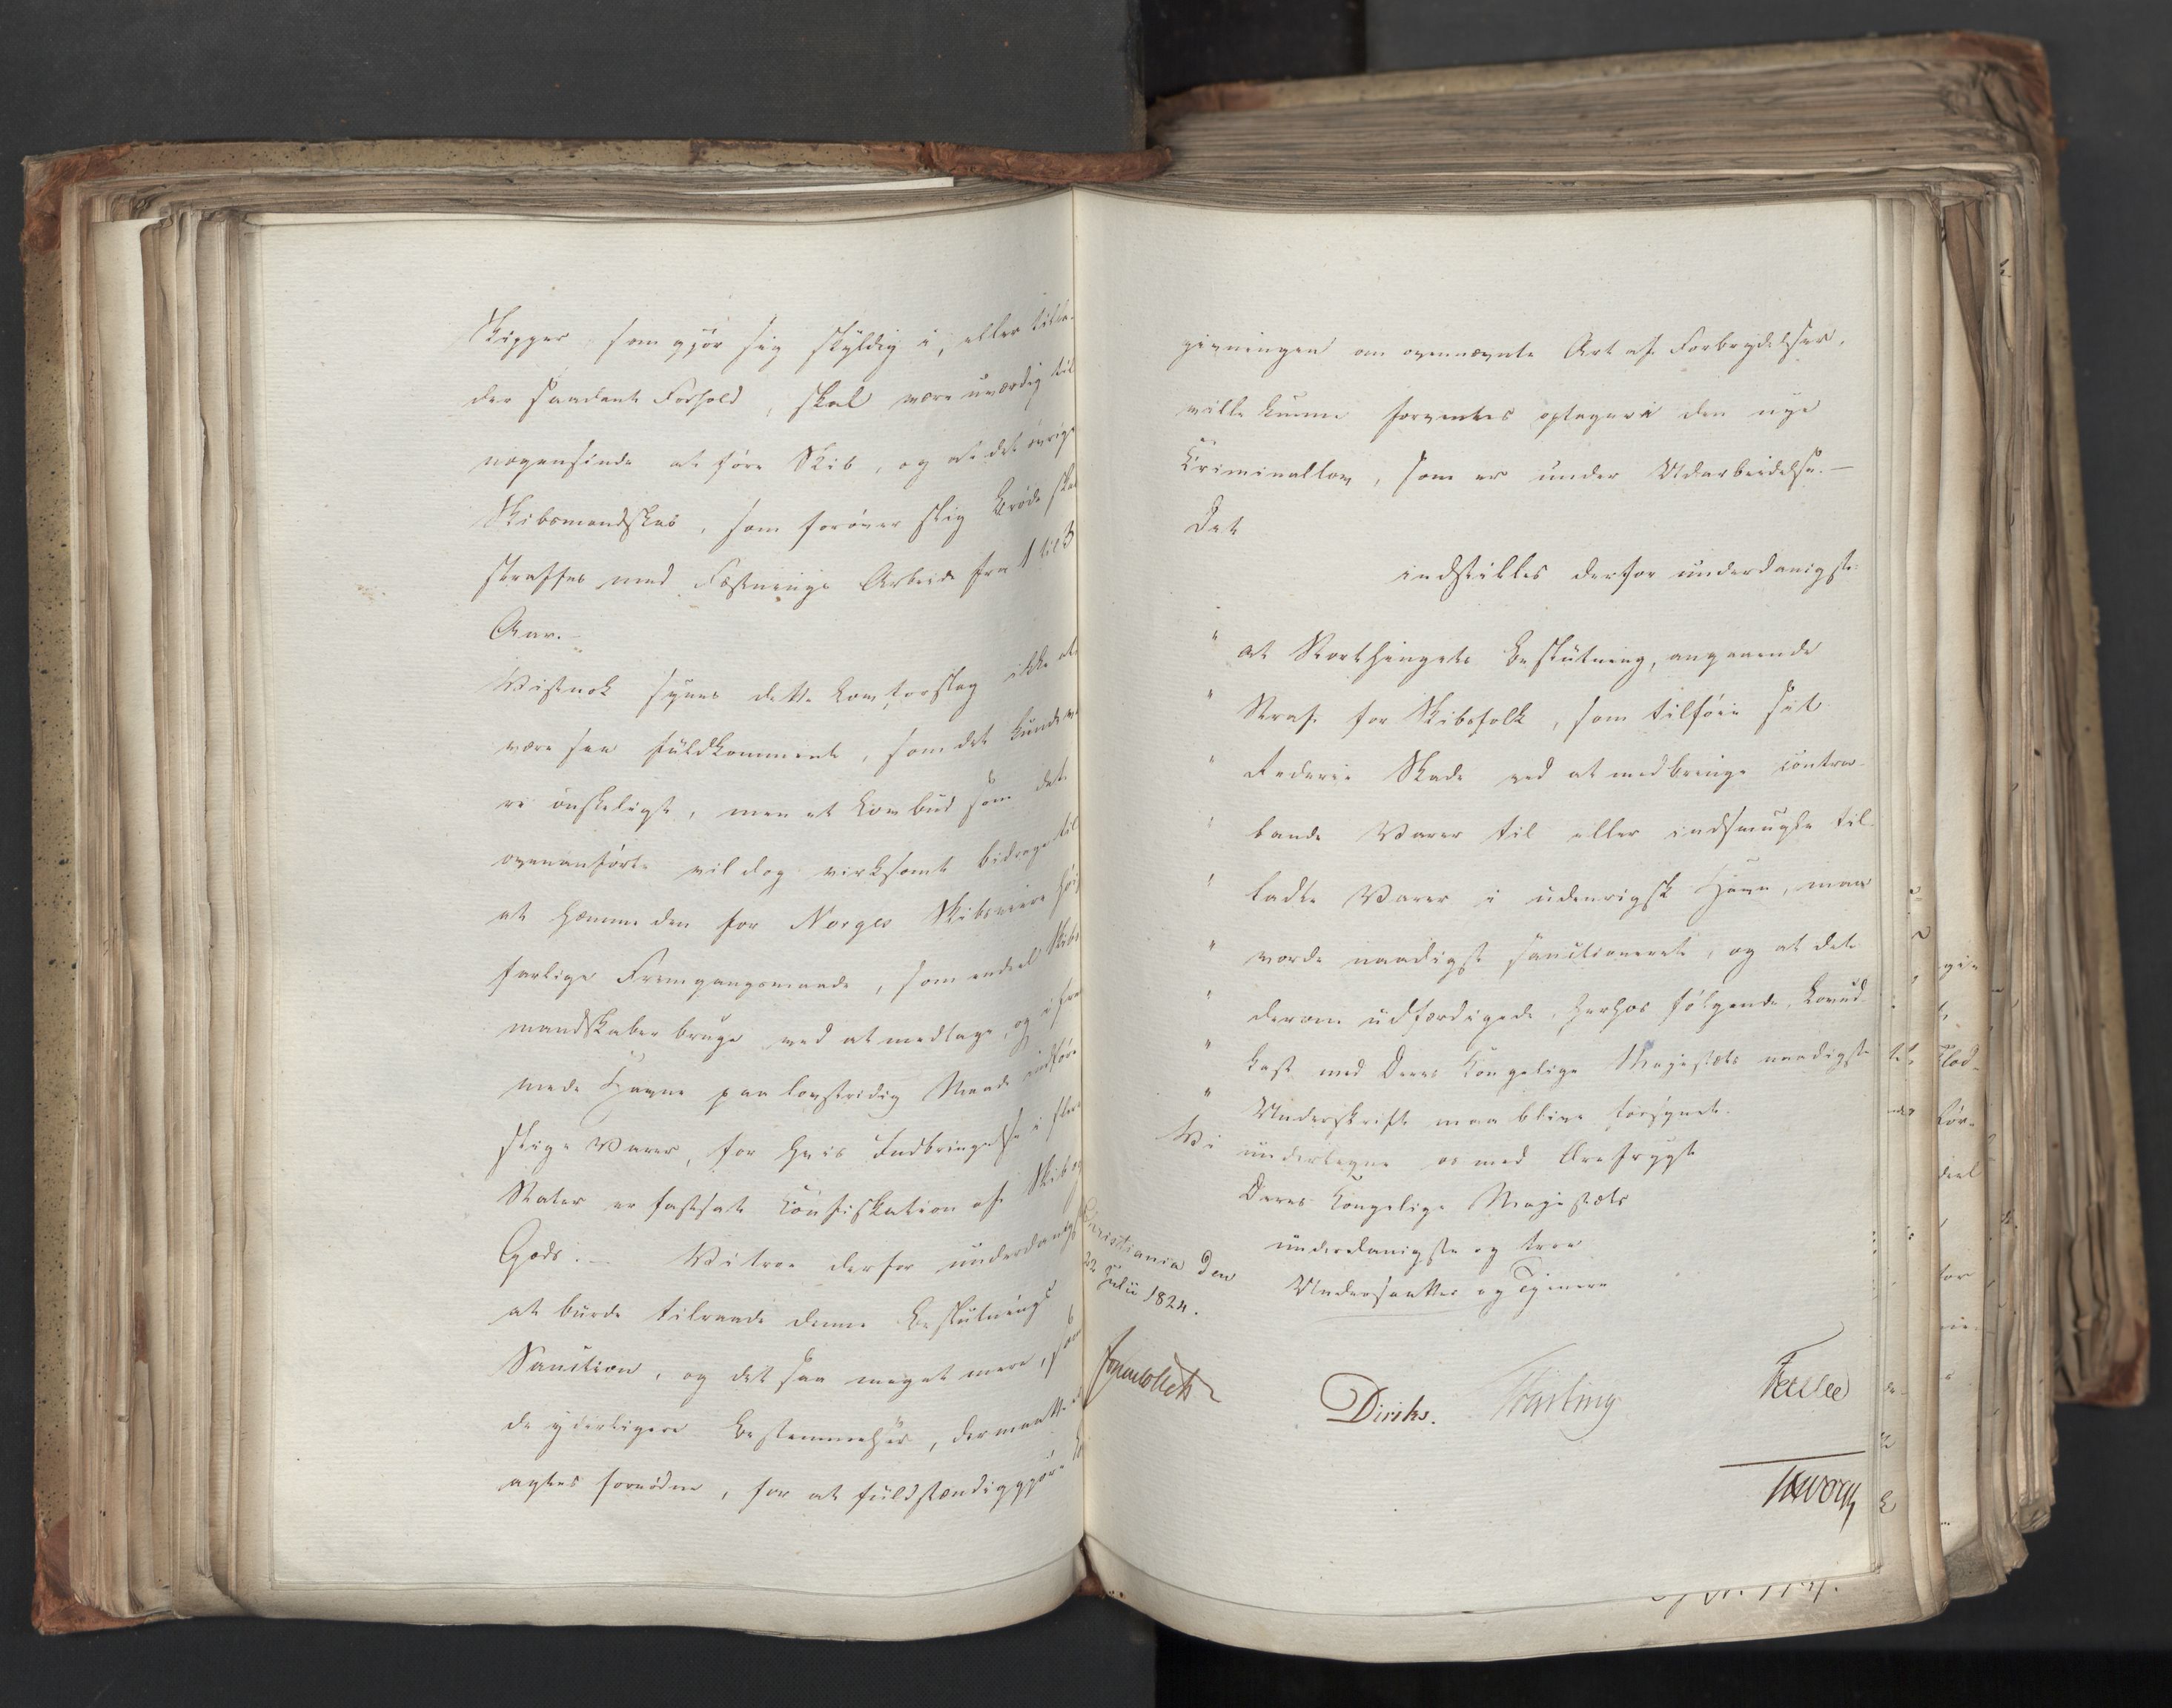 Skipper som gjør sig skyldig i, eller tilla-
der saadant Forhold, skal være uværdig til
nogensinde at føre Skib, og at det øvrige
Skibsmandskab, som forøver slig Brøde skal
straffes med Fæstnings Arbeide fra 1 til 3
Aar.-
Vistnok synes dette Lovforslag ikke at
være saa fuldkomment, som det kunde væ-
re ønskeligt, men et Lovbud som det
ovenanførte vil dog virksomt bidrage til
at hæmme den for Norges Skibsreiere høist
farlige Fremgangsmaade, som endeel Skibs
mandskaber bruge ved at medtage, og i frem-
mede Havne paa lovstridig Maade indføre
slige Varer, for hvis Indbringelse i flere
Stater er fastsat Konfiskation af Skib og
Gods.- Vi troe derfor underdanigst
at burde tilraade denne Beslutnings
Sanction, og det saa meget mere, som
de yderligere Bestemmelser, der maatte
agtes fornødne, for at fuldstændiggjøre
givningen om ovennævnte Art af Forbrydelser,
ville kunne forventes optagne i den nye
Kriminallov, som er under Udarbeidelse.-
Det
indstilles derfor underdanigst:
" at Storthingets Beslutning, angaaende
" Straf for Skibsfolk, som tilføie sit
" Rederie Skade ved at medbringe contra-
" bande Varer til eller indsmugle til-
" ladte Varer i udenrigsk Havn, maa
" vorde naadigst sanctioneret, og at det
" derom udfærdigede, herhos følgende Lovud-
" kast med Deres Kongelige Majestæts naadigste
" Underskrift maa blive forsynet.
Vi undertegne os med Ærefrygt
Deres Kongelige Majestæts
underdanigste og troe
Undersaatter og Tjenere
Christiania den
22 Julii 1824.
Jonas Collett
Diriks.